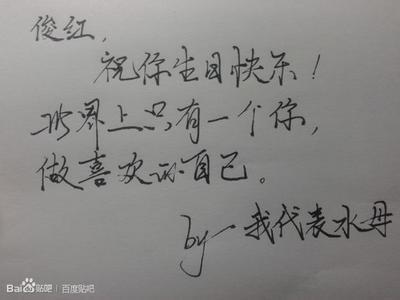 俊红,
祝你生日快乐!
世界上只有一个你,
做喜欢的自己。
by 我代表水母
Bai贴吧 | 百度贴吧